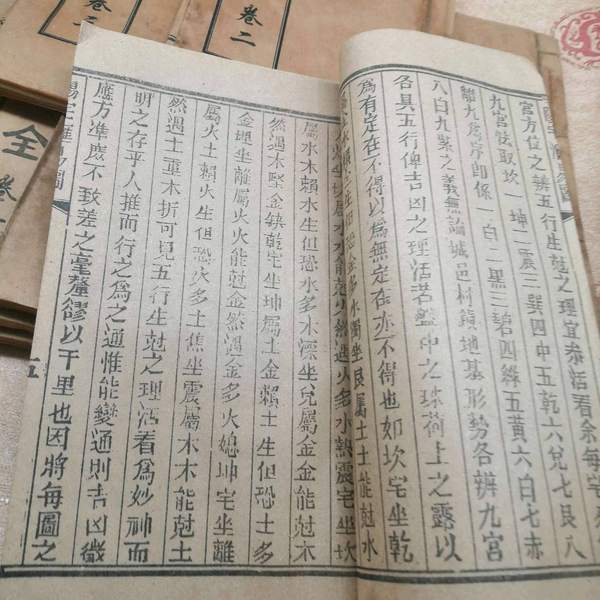 宮方位之辨五行生尅之理宜泰活看余每宅
九宮弦取坎一坤二震三巽四中五乾六兌七艮八
離九爲序卽係一白二黑三碧四綠五黃六白七赤
八白九紫之義無論城邑村鎮地基形勢各辨九宮
各具五行俾吉凶之理活若盤中之珠荷上之露以
爲有定在不得以爲無定在亦不得也如坎宅坐乾
金多水濁坐艮屬土土能尅水
屬水木賴水生但恐水多木漂坐兌屬金金能尅木
然遇木堅金缺乾宅坐坤屬土金賴土生但恐土多
金埋坐離屬火火能尅金然遇金多火熄坤宅坐離
屬火土賴火生但恐火多土焦坐震屬木木能尅土
然遇土重木折可見五行生尅之理活看爲妙神而
明之存乎人推而行之爲之通惟能變通則吉凶徵
應方準庶不致差之毫釐繆以千里也因將每圖之
五
卷二
卷二
全
卷一